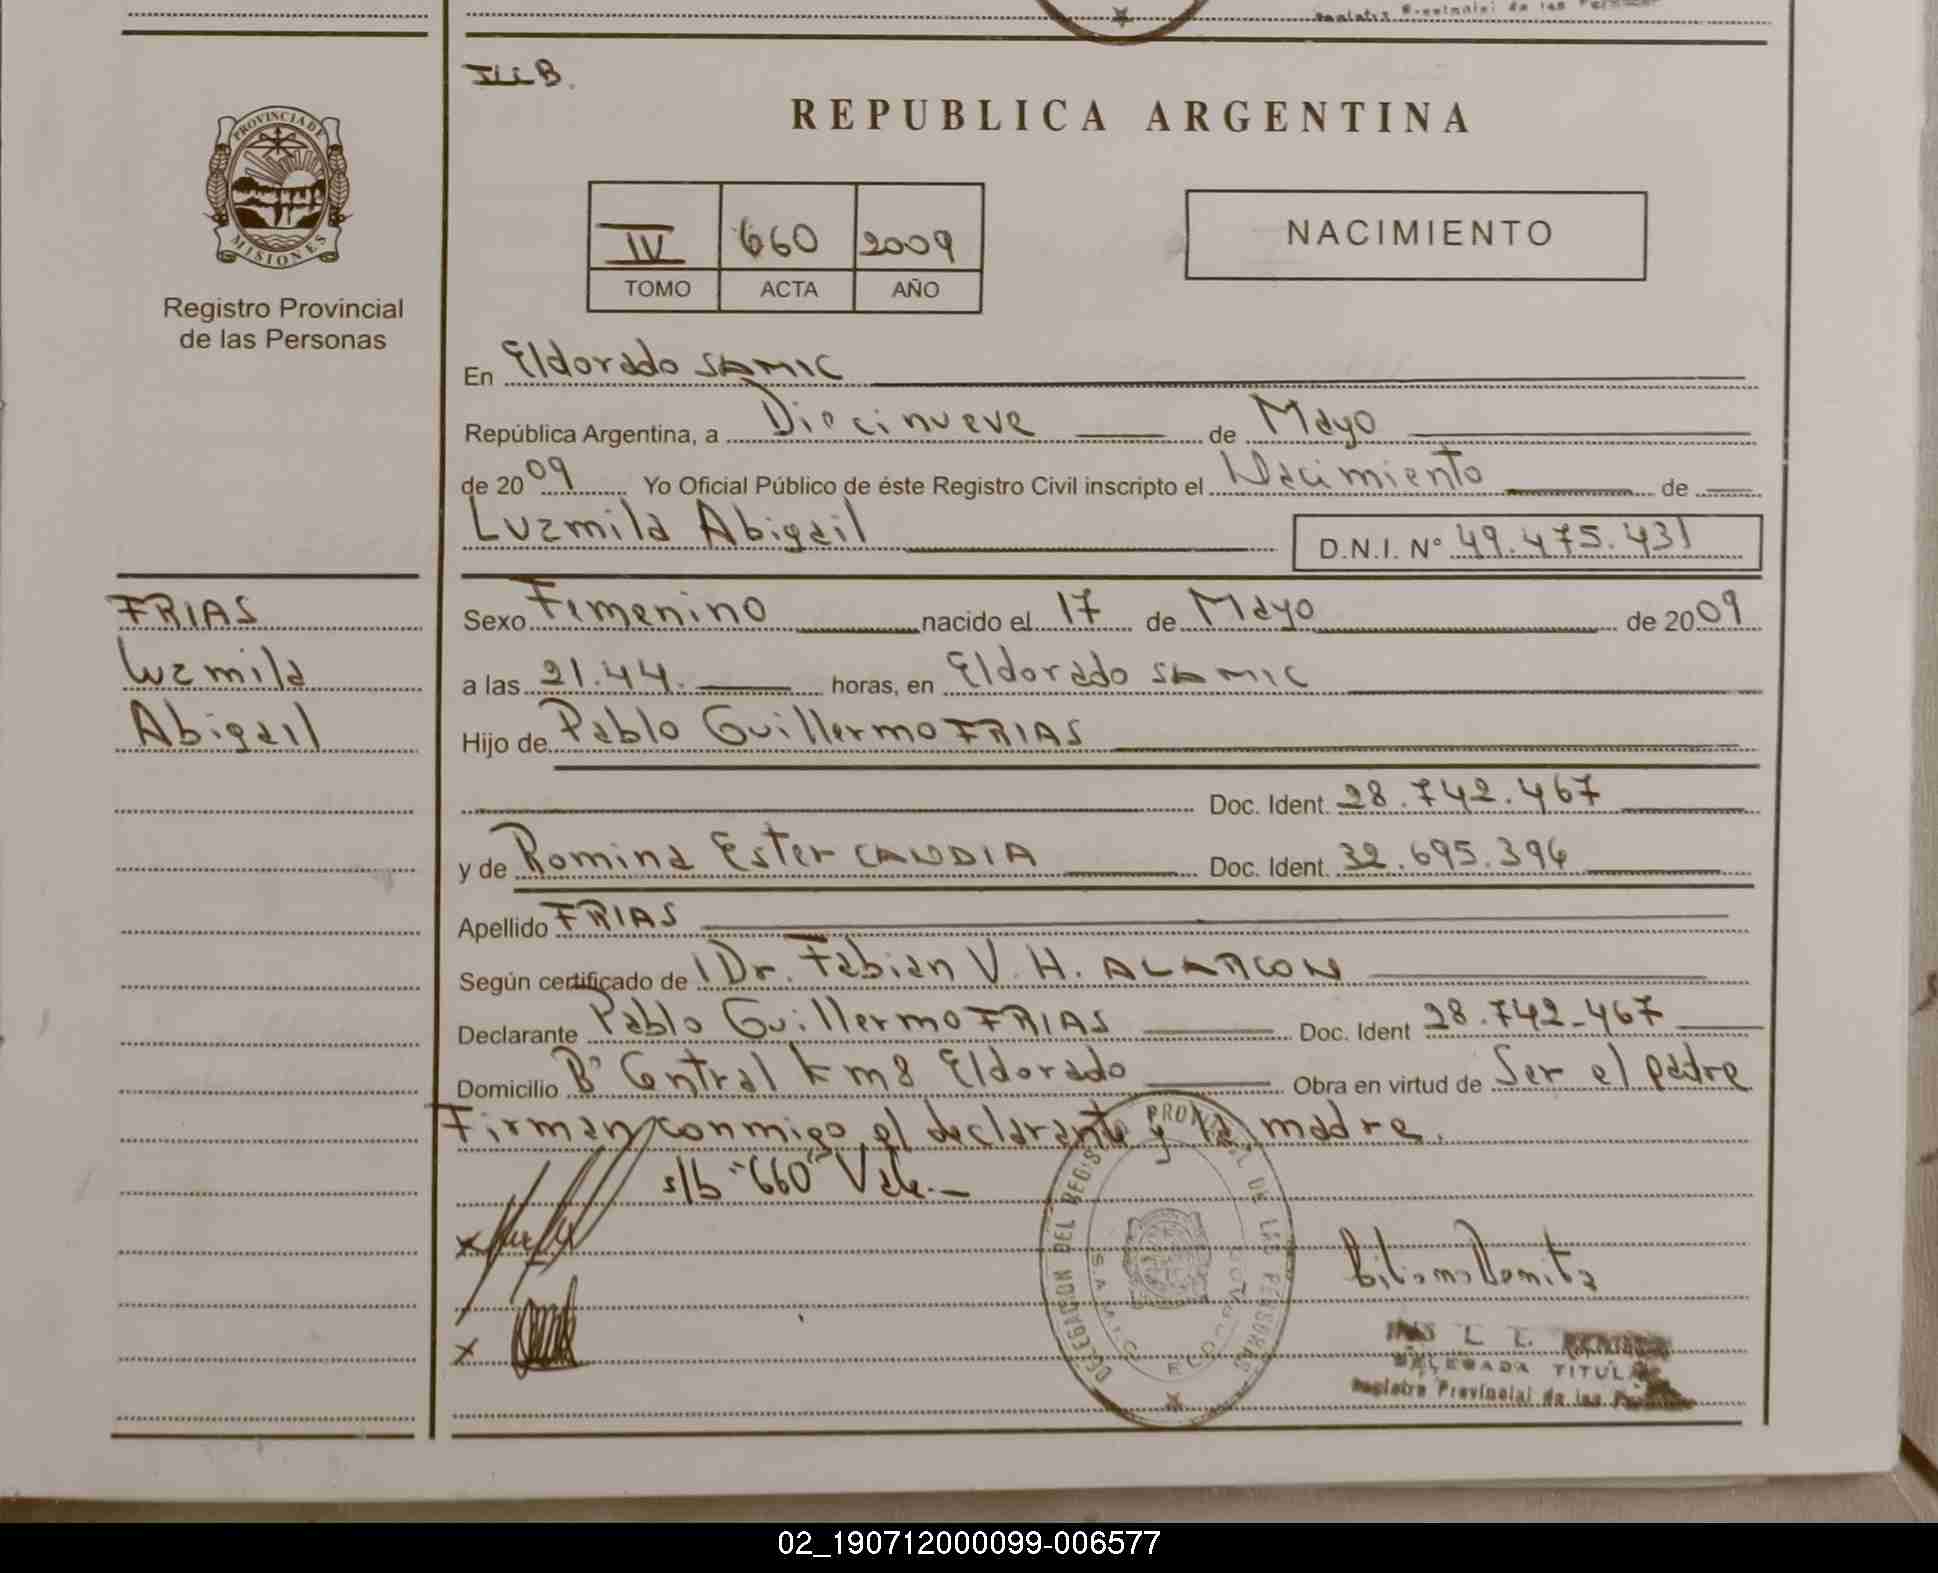 III B.
REPUBLICA ARGENTINA
PROVINCIA DE
MISIONES
Registro Provincial
de las Personas
IV 660 2009
TOMO ACTA AÑO
NACIMIENTO
En Eldorado SAMIC
República Argentina, a Diecinueve de Mayo
de 2009 Yo Oficial Público de éste Registro Civil inscripto el Nacimiento de
Luzmila Abigail D.N.I. Nº 49.475.431
FRIAS
Luzmila
Abigail
Sexo Femenino nacido el 17 de Mayo de 2009
a las 21.44. horas, en Eldorado SAMIC
Hijo de Pablo Guillermo FRIAS
Doc. Ident. 28.742.467
y de Romina Ester CANDIA Doc. Ident. 32.695.394
Apellido FRIAS
Según certificado de Dr. Fabian V. H. ALARCON
Declarante Pablo Guillermo FRIAS Doc. Ident 28.742-467
Domicilio Bº Central km 8 Eldorado Obra en virtud de Ser el padre
Firman conmigo el declarante y la madre.
s/b "660" Vale.-
DELEGACION DEL REGISTRO PROVINCIAL DE LAS PERSONAS
S.A.M.I.C. ELDORADO
DELEGADA TITULAR
Registro Provincial de las Personas
02_190712000099-006577